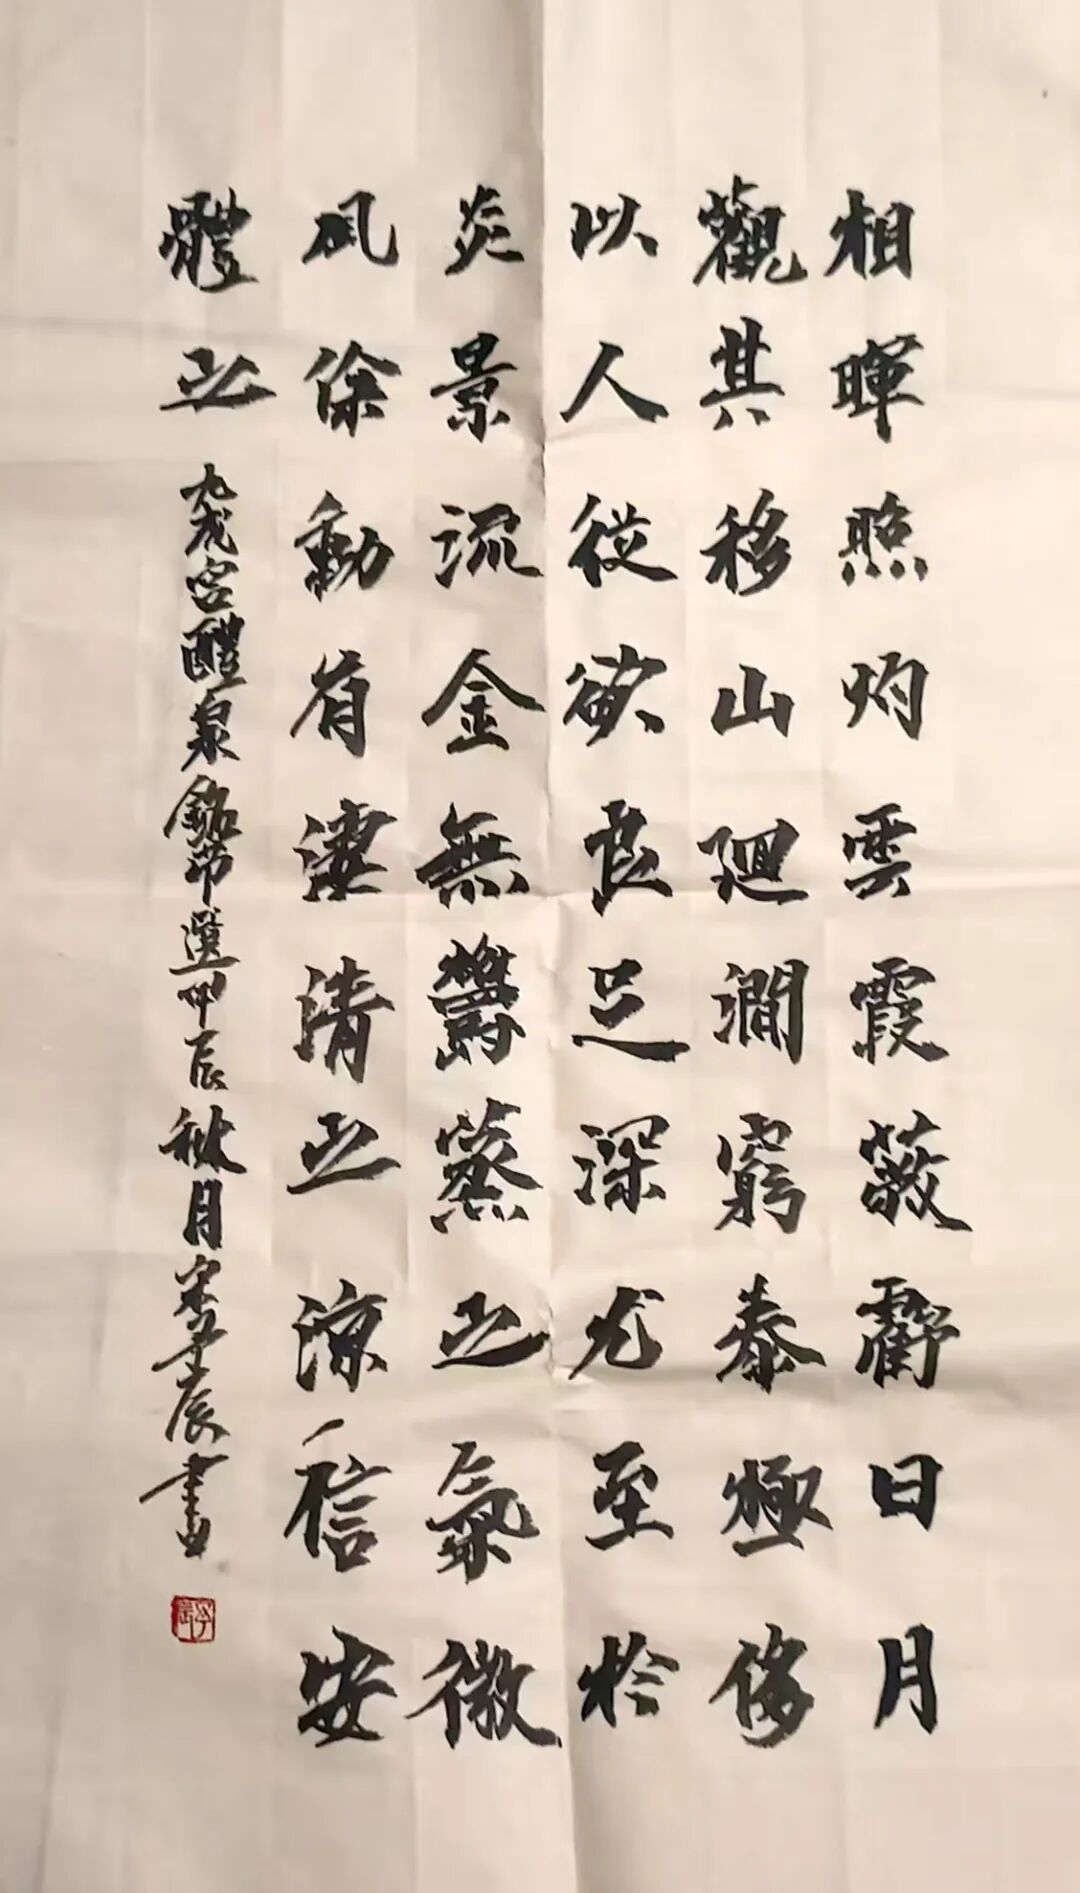 相暉照灼雲霞蔽虧日月
觀其移山迴澗窮泰極侈
以人從欲良足深尤至於
炎景流金無鬱蒸之氣微
風徐動有凄清之凉信安
體之
九成宮醴泉銘節選甲辰秋月宋子辰書